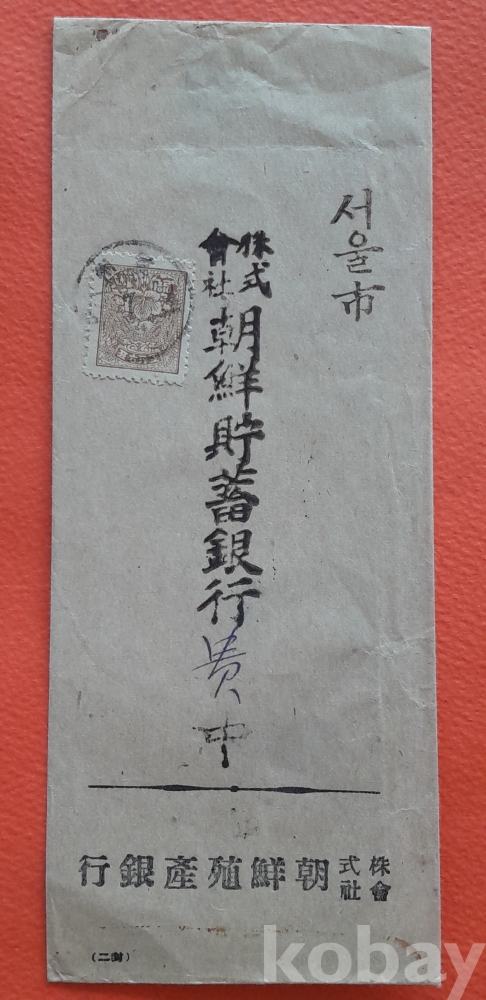 서울市
株式
會社
朝鮮貯蓄銀行貴中
株會
式社
朝鮮殖產銀行
(二封)
kobay